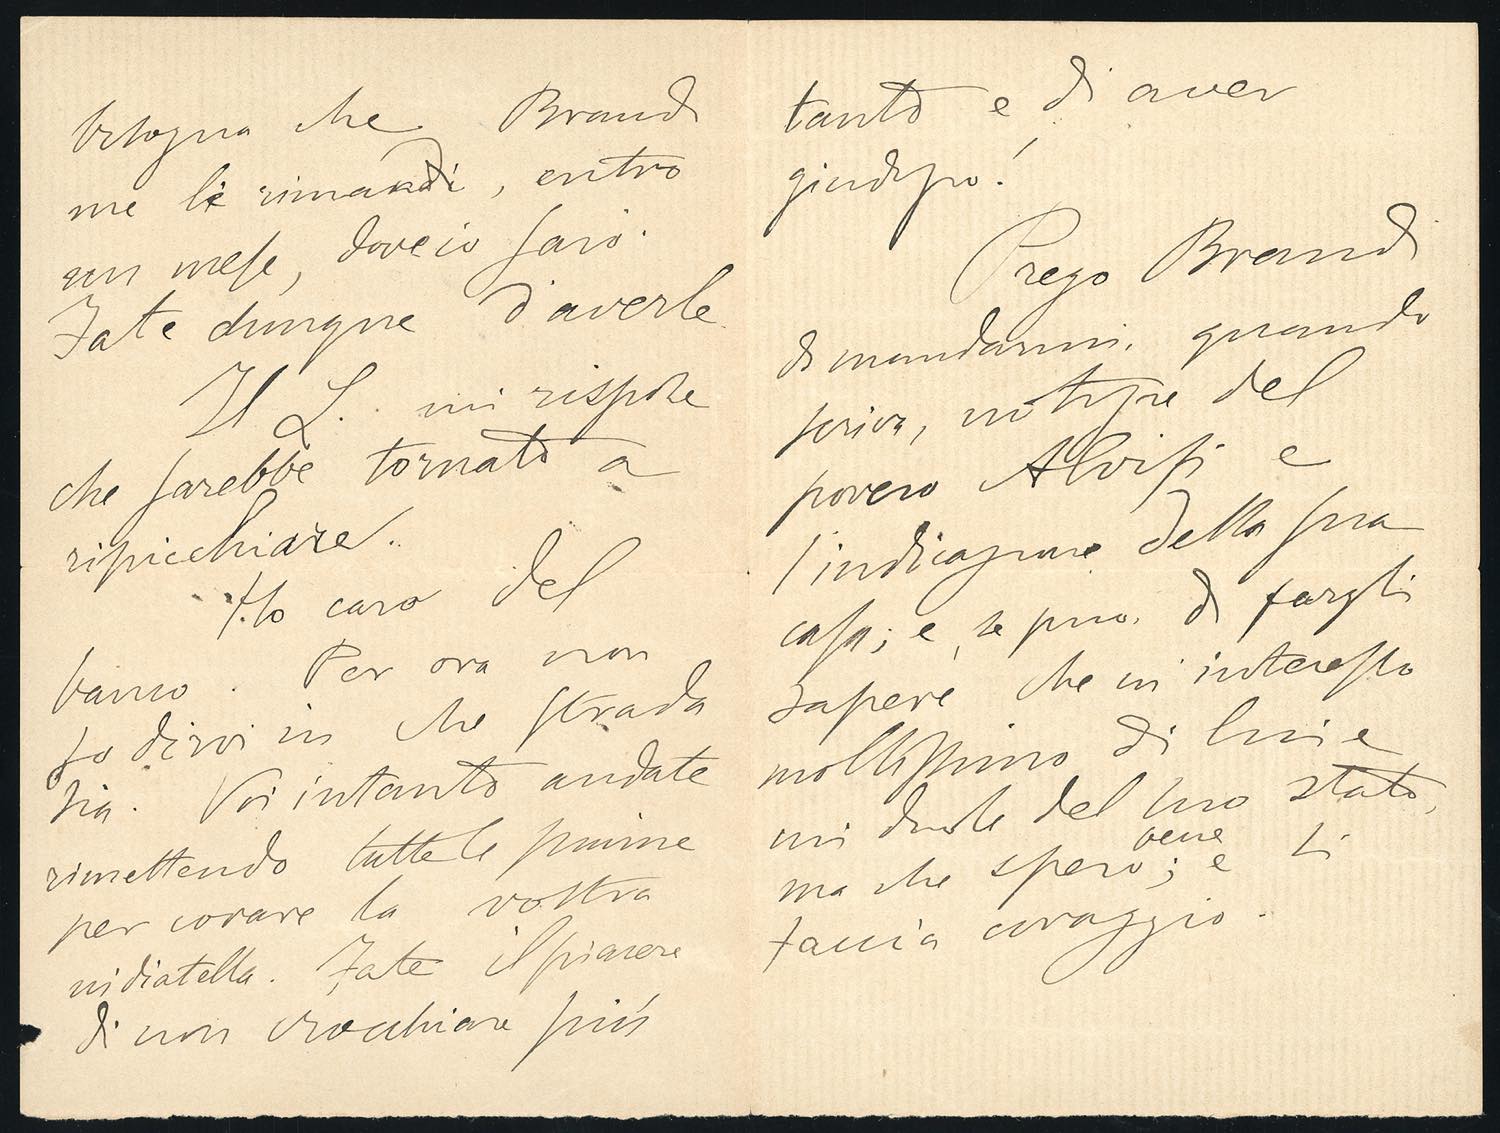 bisogna che Brandi
me li rimandi, entro
un mese, dove io sarò.
Fate dunque d'averle
Il L. mi rispose
che sarebbe tornato a
ripicchiare.
Ho caro del
banco. Per ora non
so dirvi in che strada
sia. Voi intanto andate
rimettendo tutte le piume
per covare la vostra
nidiatella. Fate il piacere
di non crocchiare più
tanto e di aver
giudizio!
Prego Brandi
di mandarmi, quando
scriva, notizie del
povero Alvisi e
l'indicazione della sua
casa; e, se può, di fargli
sapere che m'interesso
moltissimo di lui e
mi duole del suo stato,
ma che spero bene; e si
faccia coraggio.